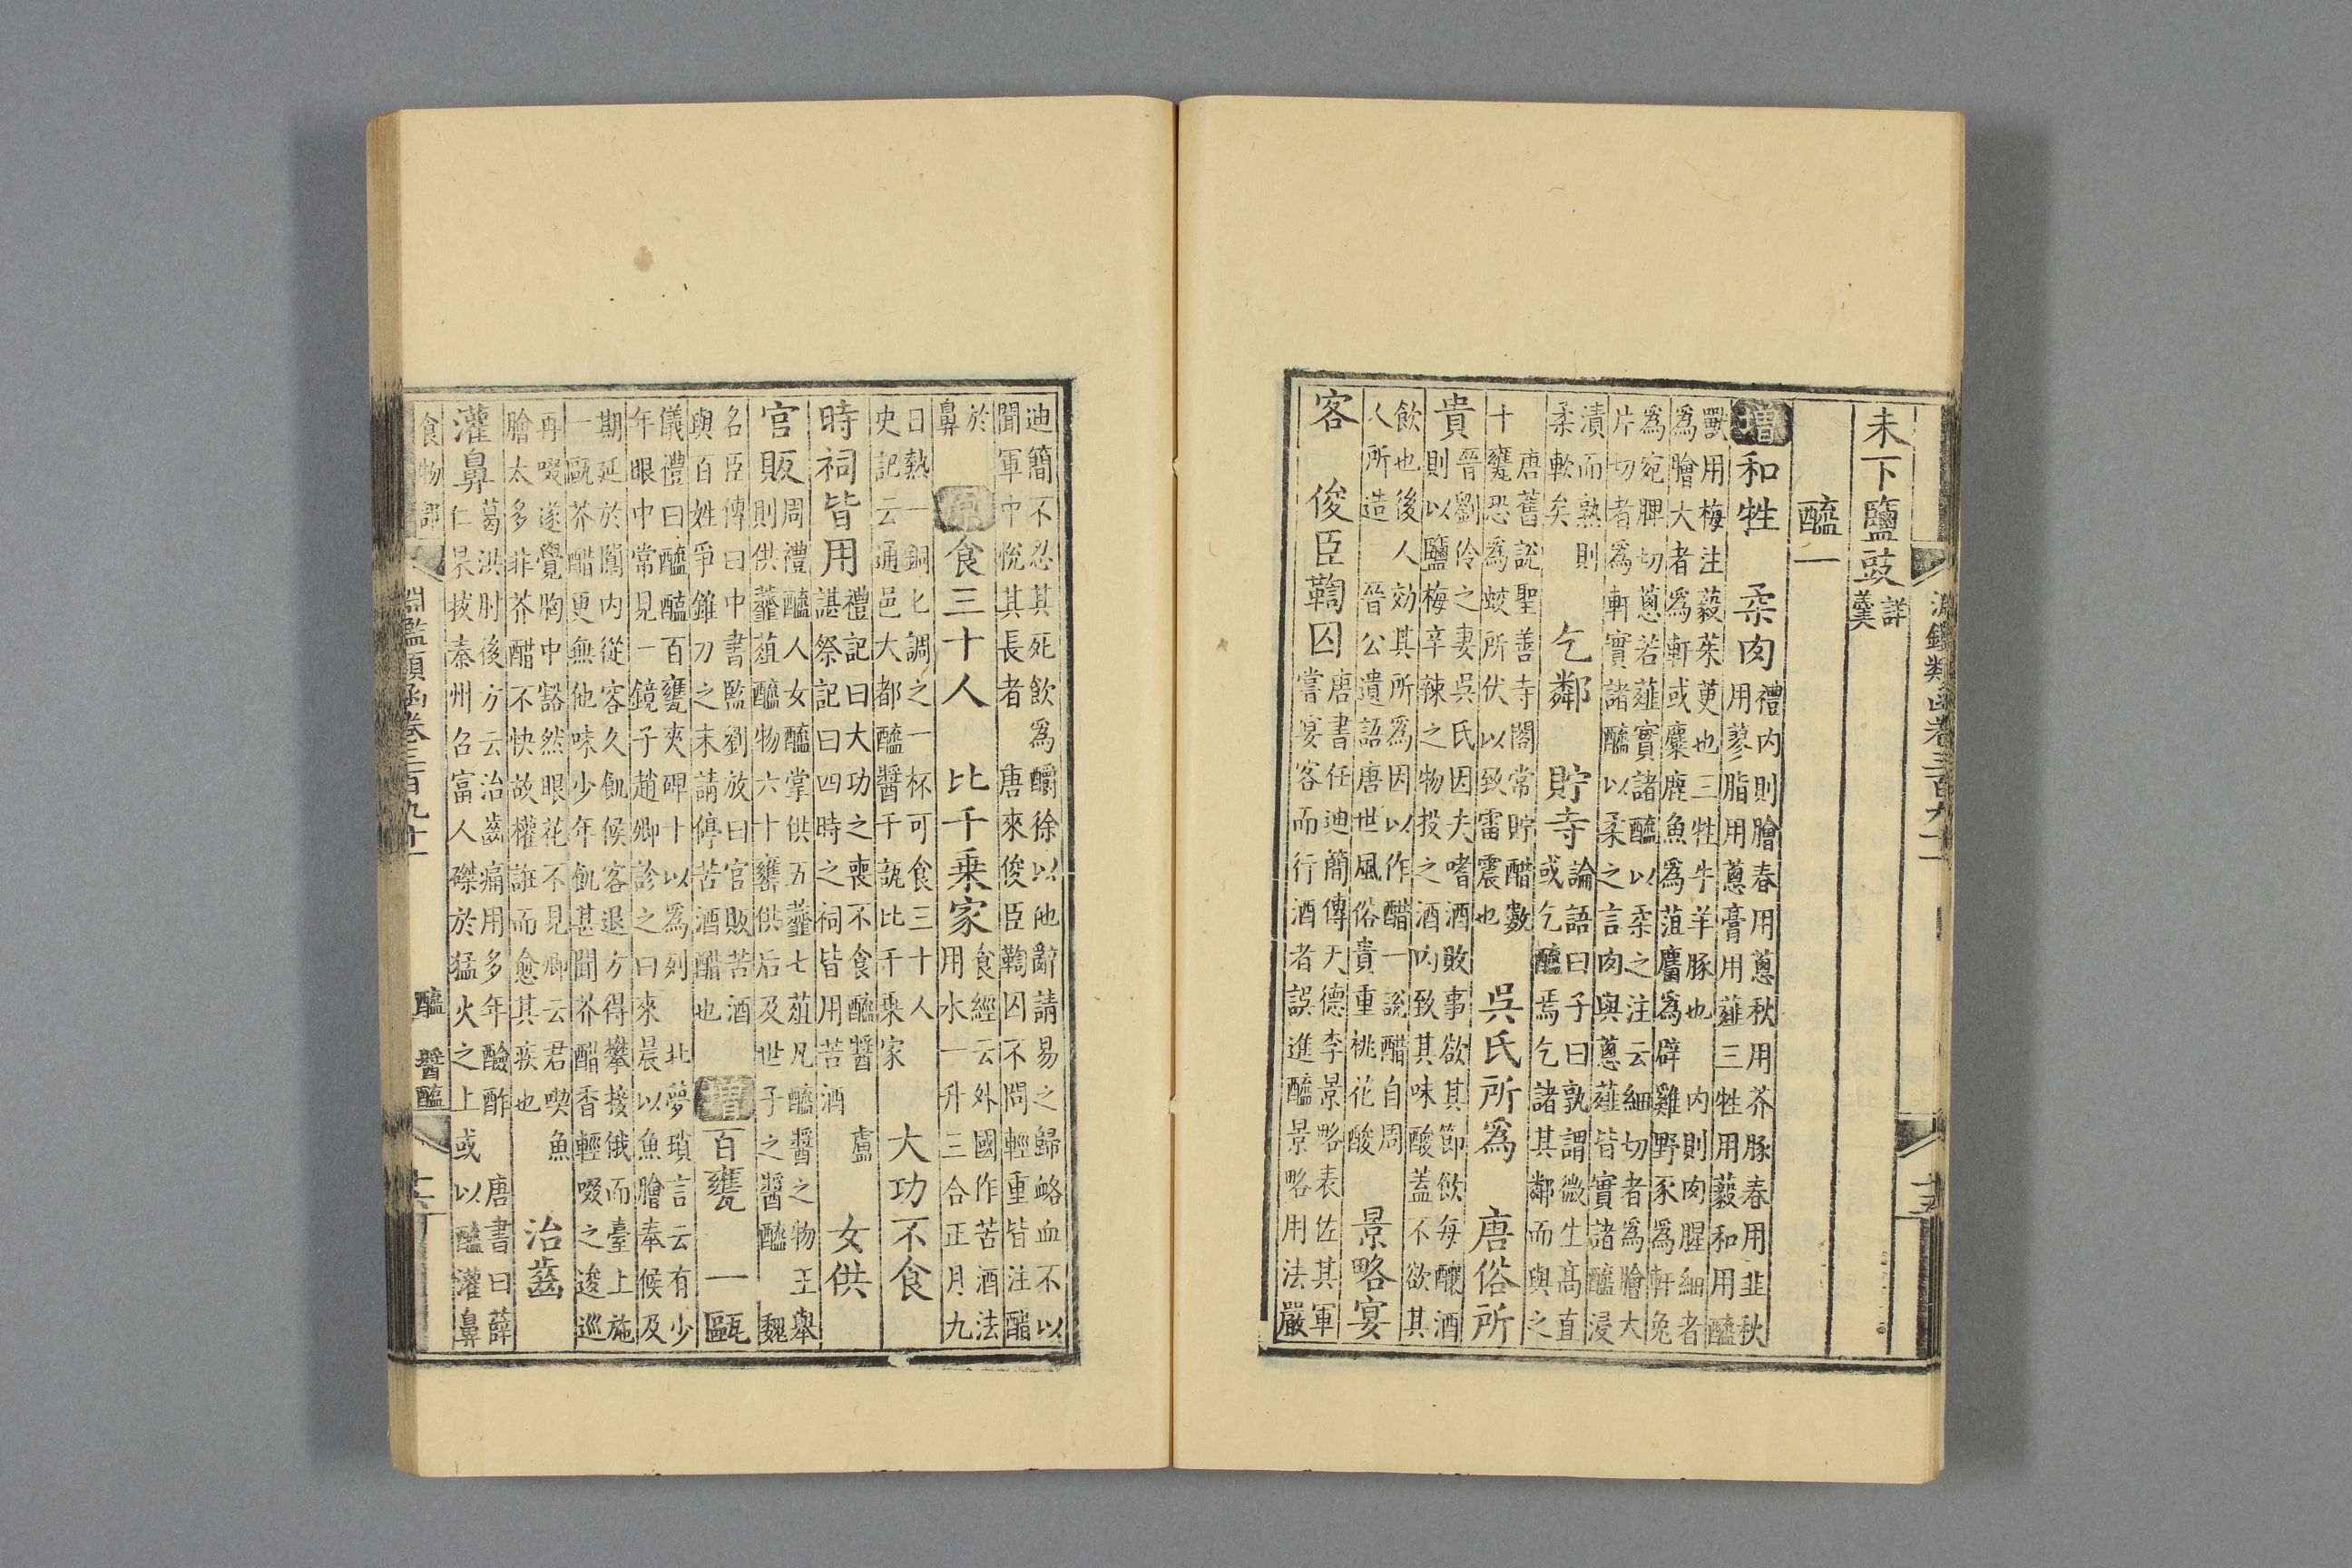 淵鑑類函卷三百九十一　十五
未下鹽豉詳羹
醯一
增和牲　柔肉禮內則膾春用蔥秋用芥豚春用韭秋用蓼脂用蔥膏用薤三牲用藙和用醯
獸用梅注藙茱萸也三牲牛羊豚也　內則肉腥細者為膾大者為軒或麋鹿魚為菹麕為辟雞野豕為軒兔
為宛脾切蔥若薤實諸醯以柔之注云細切者為膾大片切者為軒實諸醯以柔之言肉與蔥薤皆實諸醯浸
漬而熟則柔軟矣　乞鄰　貯寺論語曰子曰孰謂微生高直或乞醯焉乞諸其鄰而與之
唐舊說聖善寺閣常貯醋數十甕恐為蛟所伏以致雷震也　吳氏所為　唐俗所
貴晉劉伶之妻吳氏因夫嗜酒敗事欲其節飲每釀酒則以鹽梅辛辣之物投之酒內致其味酸蓋不欲其
飲也後人効其所為因以作醋一說醋自周人所造　晉公遺語唐世風俗貴重桃花酸　景略宴
客　俊臣鞫囚唐書任迪簡傳天德李景略表佐其軍嘗宴客而行酒者誤進醯景略用法嚴
迪簡不忍其死飲為釂徐以他辭請易之歸衂血不以聞軍中悅其長者　唐來俊臣鞫囚不問輕重皆注醋
於鼻　原食三十人　比千乘家食經云外國作苦酒法用水一升三合正月九
日熱一銅匕調之一杯可食三十人史記云通邑大都醯醬千瓨比千乘家　大功不食
時祠皆用禮記曰大功之喪不食醯醬　盧諶祭記曰四時之祠皆用苦酒　女供
官販周禮醯人女醯掌供五虀七葅凡醯醬之物王舉則供虀葅醯物六十甕供后及世子之醬醯　魏
名臣傳曰中書監劉放曰官販苦酒與百姓爭錐刀之末請停苦酒醋也　增百甕　一甌
儀禮曰醯醢百甕夾碑十以為列　北夢瑣言云有少年眼中常見一鏡子趙卿診之曰來晨以魚膾奉候及
期延於閣內從容久飢候客退方得攀接俄而臺上施一甌芥醋更無他味少年飢甚聞芥醋香輕啜之逡巡
再啜遂覺胸中豁然眼花不見卿云君喫魚膾太多非芥醋不快故權誑而愈其疾也　治齒
灌鼻葛洪肘後方云治齒痛用多年醶酢　唐書曰薛仁杲拔秦州召富人磔於猛火之上或以醯灌鼻
食物部　淵鑑類函卷三百九十一　醯　醬醯　十六